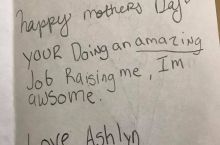 happy mothers Day
your Doing an amazing
Job Raising me, Im
awsome.
Love Ashlyn